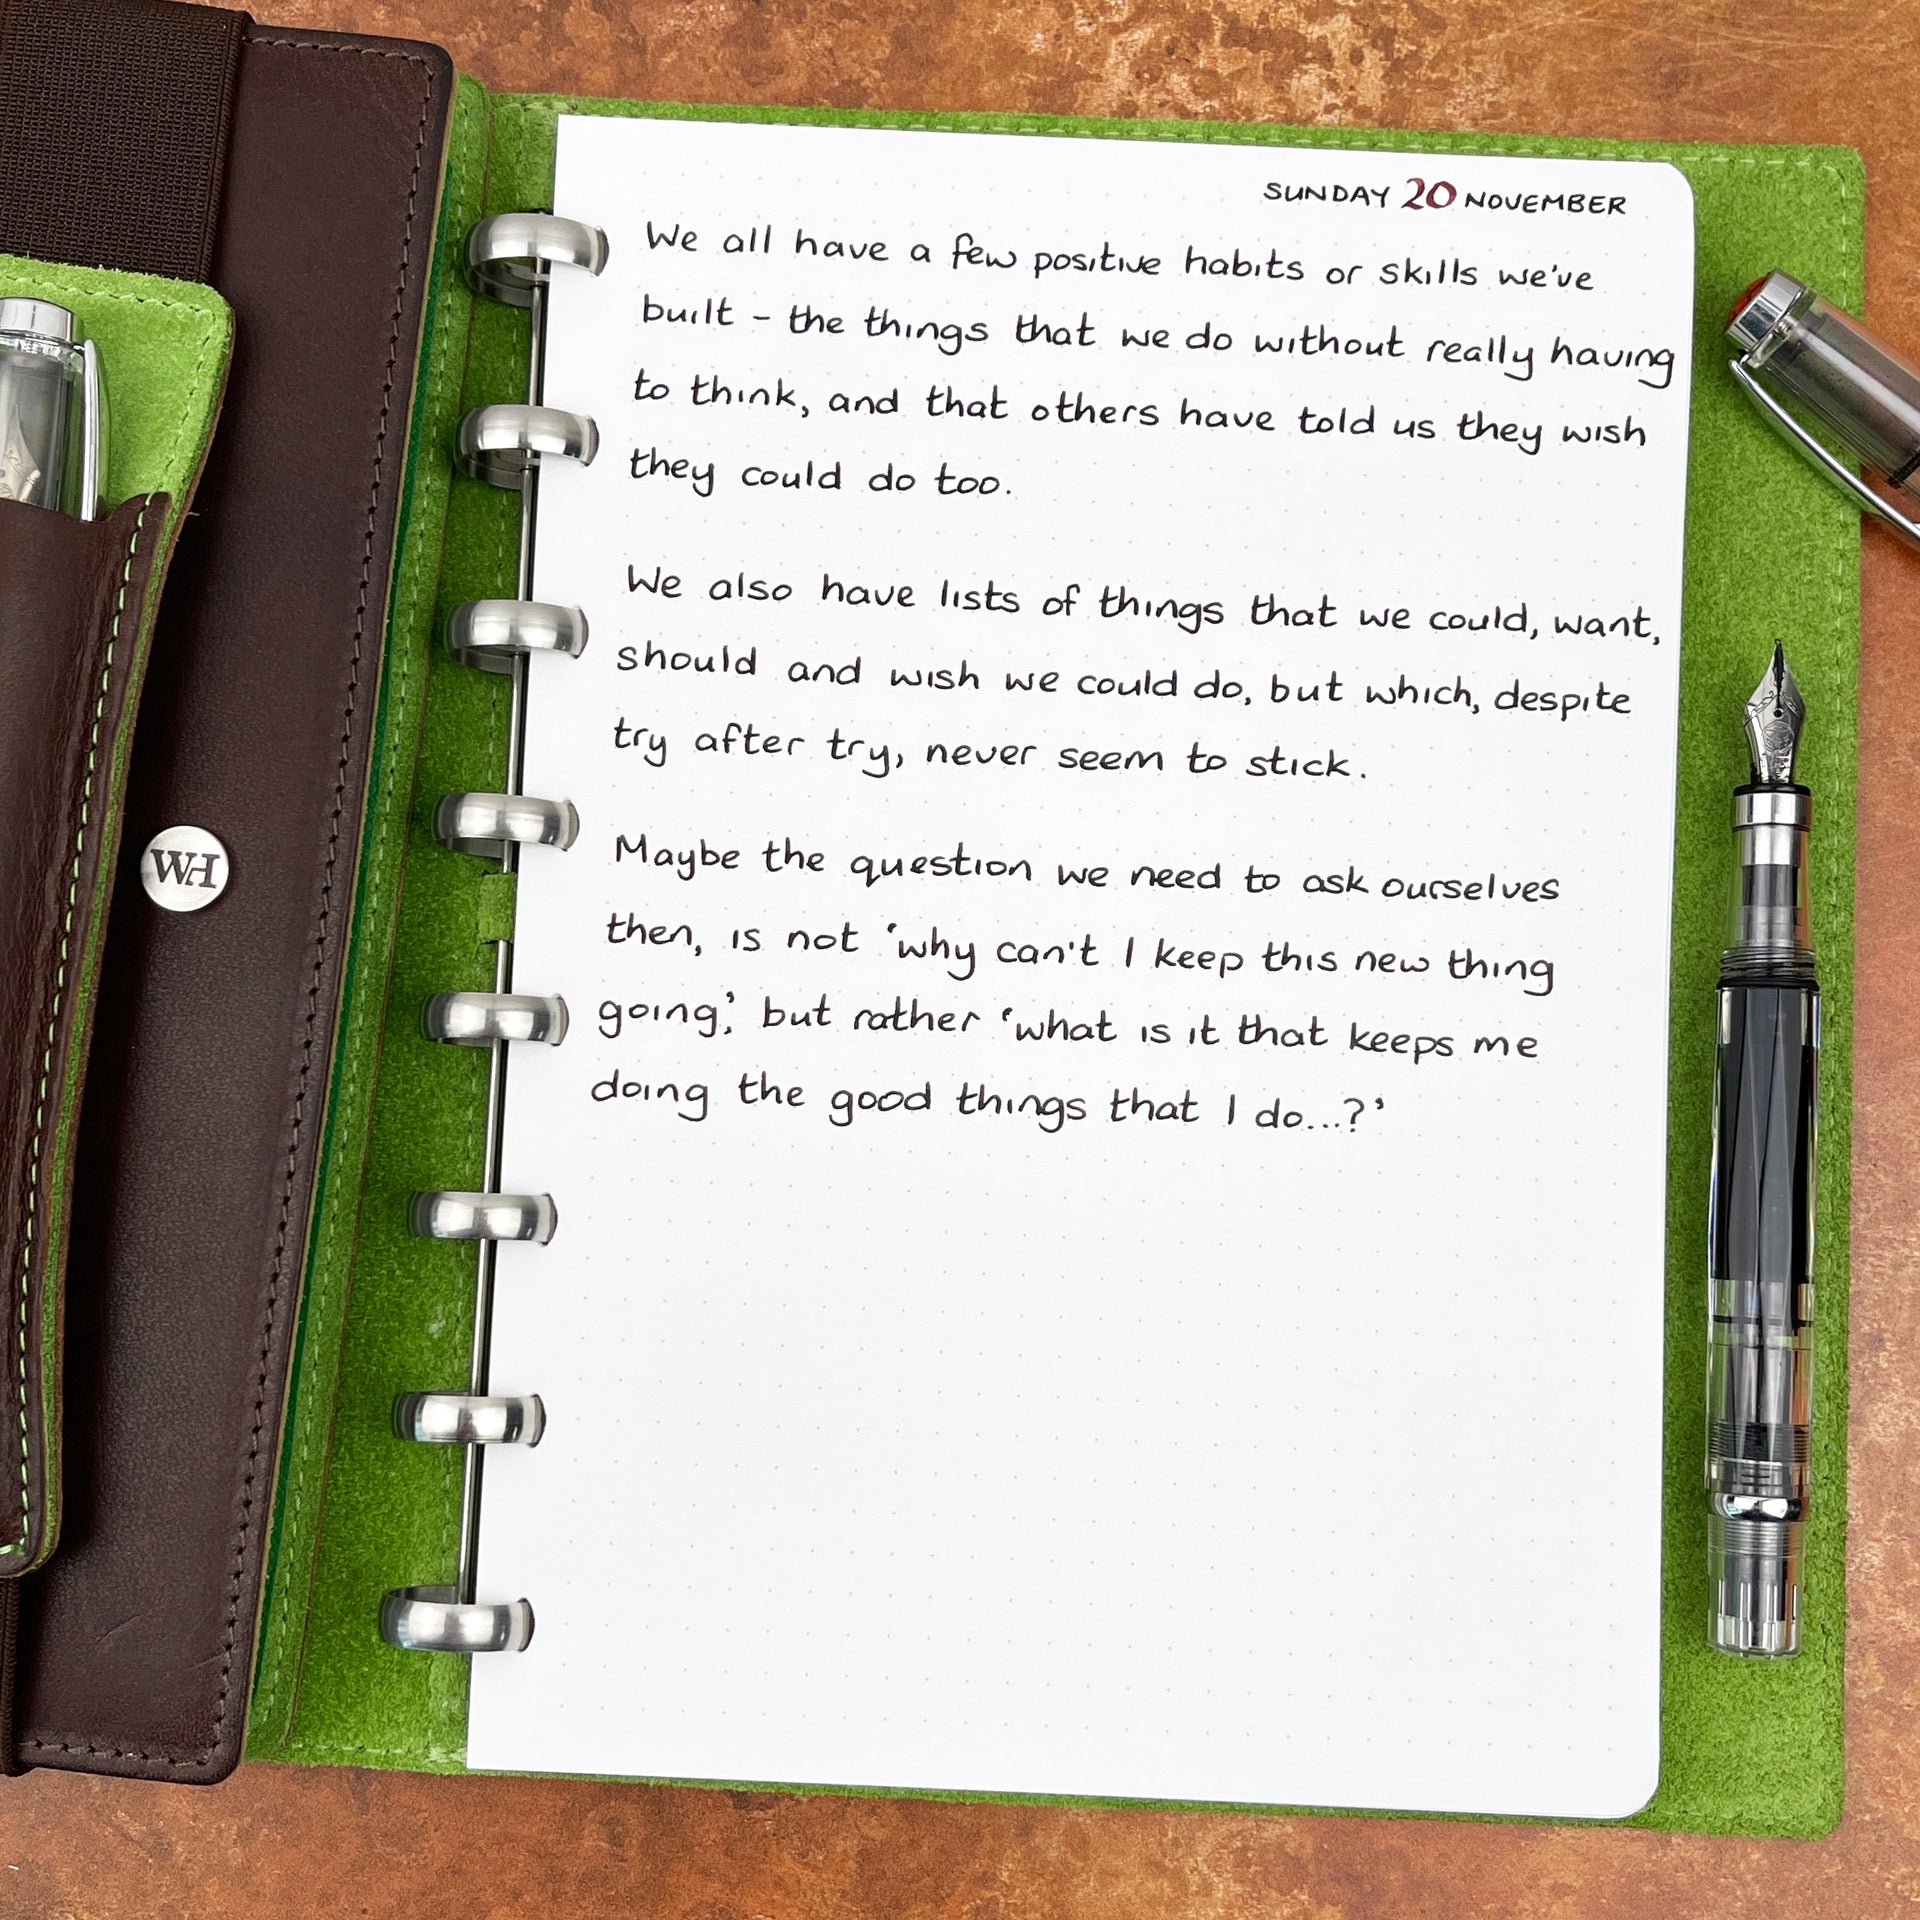 SUNDAY 20 NOVEMBER
We all have a few positive habits or skills we've
built - the things that we do without really having
to think, and that others have told us they wish
they could do too.
We also have lists of things that we could, want,
should and wish we could do, but which, despite
try after try, never seem to stick.
Maybe the question we need to ask ourselves
then, is not 'why can't I keep this new thing
going', but rather 'what is it that keeps me
doing the good things that I do...?'
WH